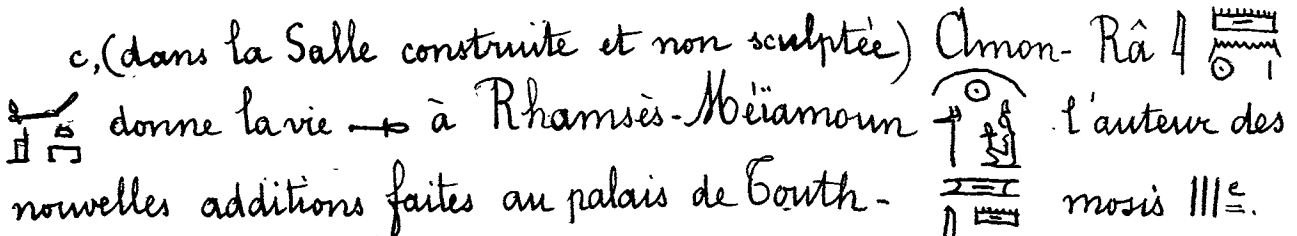 c, (dans la Salle construite et non sculptée) Amon-Râ
donne la vie à Rhamsès-Méïamoun l'auteur des
nouvelles additions faites au palais de Touth- mosis III<sup>e</sup>.